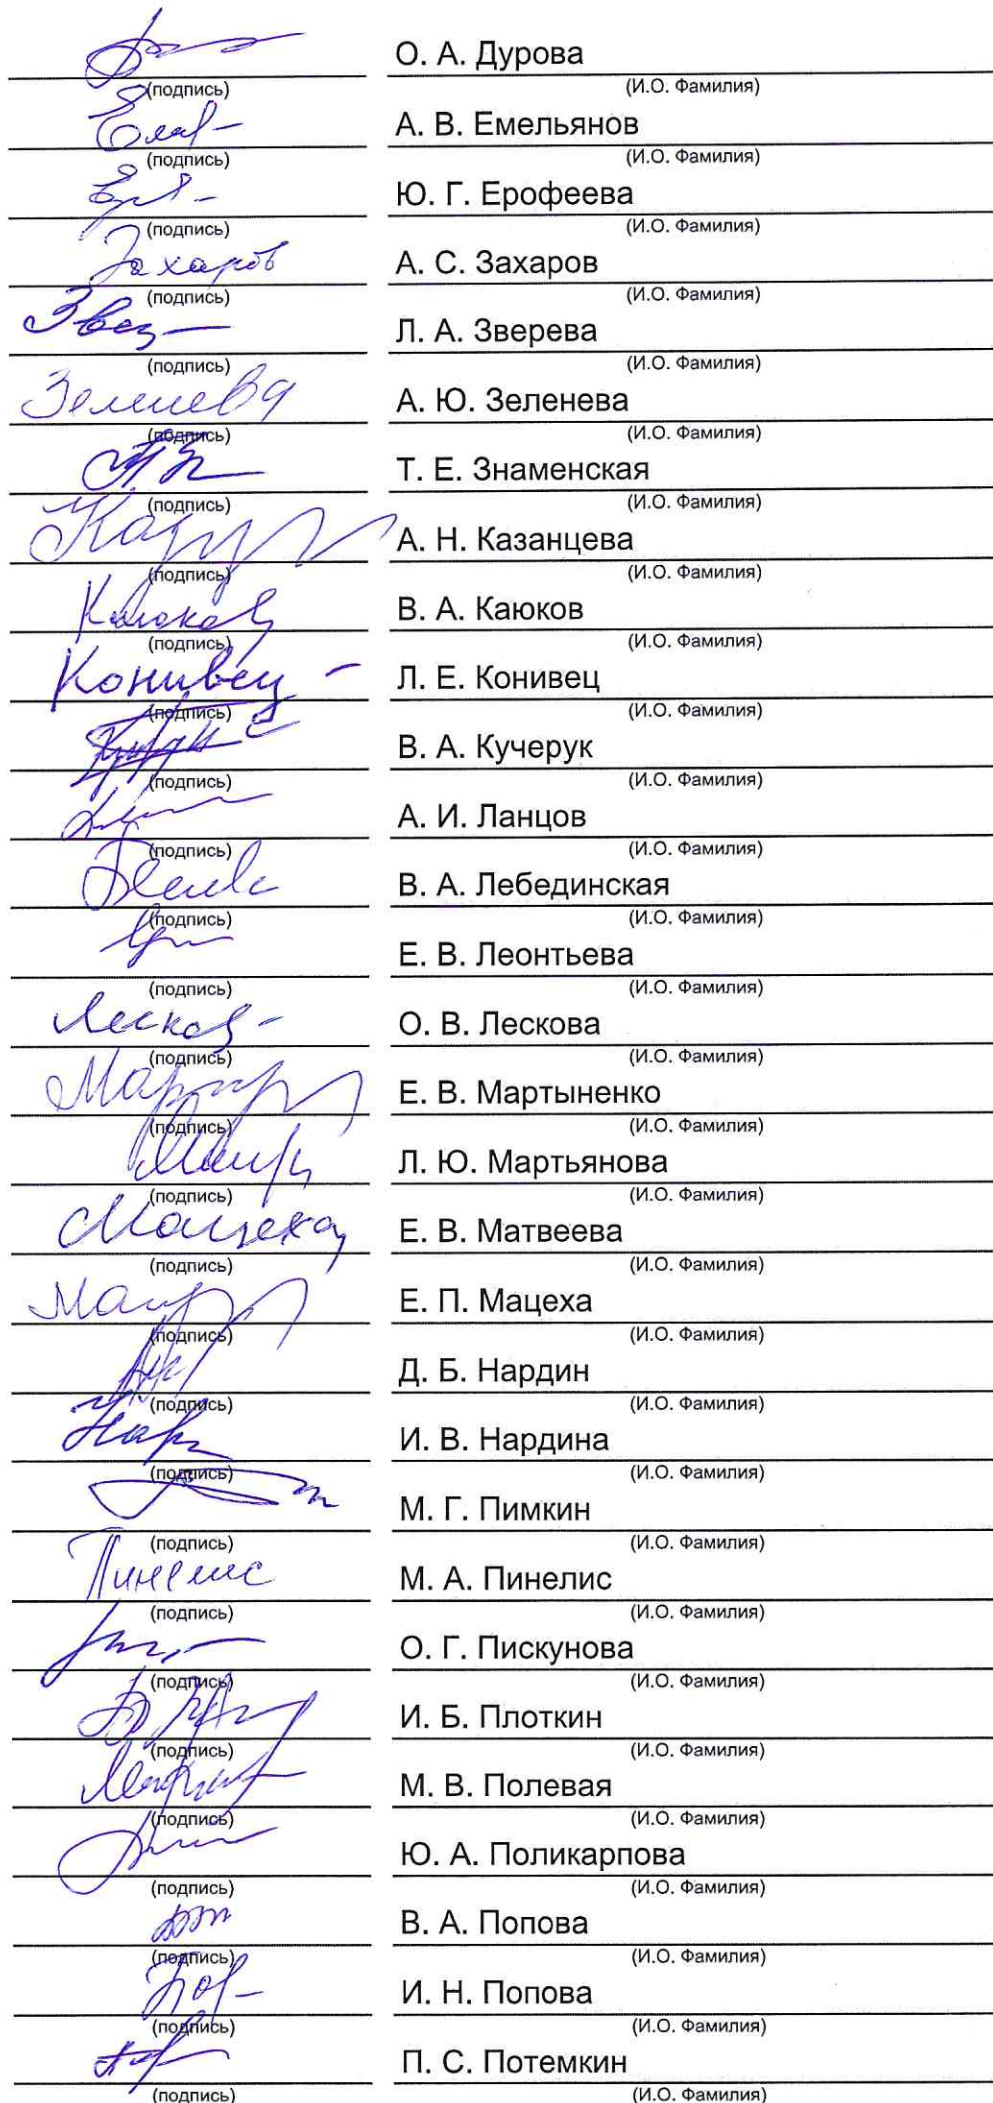 О. А. Дурова
(подпись) (И.О. Фамилия)
А. В. Емельянов
(подпись) (И.О. Фамилия)
Ю. Г. Ерофеева
(подпись) (И.О. Фамилия)
Захаров А. С. Захаров
(подпись) (И.О. Фамилия)
Л. А. Зверева
(подпись) (И.О. Фамилия)
Зеленева А. Ю. Зеленева
(подпись) (И.О. Фамилия)
Т. Е. Знаменская
(подпись) (И.О. Фамилия)
А. Н. Казанцева
(подпись) (И.О. Фамилия)
В. А. Каюков
(подпись) (И.О. Фамилия)
Конивец Л. Е. Конивец
(подпись) (И.О. Фамилия)
В. А. Кучерук
(подпись) (И.О. Фамилия)
А. И. Ланцов
(подпись) (И.О. Фамилия)
В. А. Лебединская
(подпись) (И.О. Фамилия)
Е. В. Леонтьева
(подпись) (И.О. Фамилия)
О. В. Лескова
(подпись) (И.О. Фамилия)
Е. В. Мартыненко
(подпись) (И.О. Фамилия)
Л. Ю. Мартьянова
(подпись) (И.О. Фамилия)
Мацеха Е. В. Матвеева
(подпись) (И.О. Фамилия)
Е. П. Мацеха
(подпись) (И.О. Фамилия)
Д. Б. Нардин
(подпись) (И.О. Фамилия)
И. В. Нардина
(подпись) (И.О. Фамилия)
М. Г. Пимкин
(подпись) (И.О. Фамилия)
Пинелис М. А. Пинелис
(подпись) (И.О. Фамилия)
О. Г. Пискунова
(подпись) (И.О. Фамилия)
И. Б. Плоткин
(подпись) (И.О. Фамилия)
М. В. Полевая
(подпись) (И.О. Фамилия)
Ю. А. Поликарпова
(подпись) (И.О. Фамилия)
В. А. Попова
(подпись) (И.О. Фамилия)
И. Н. Попова
(подпись) (И.О. Фамилия)
П. С. Потемкин
(подпись) (И.О. Фамилия)